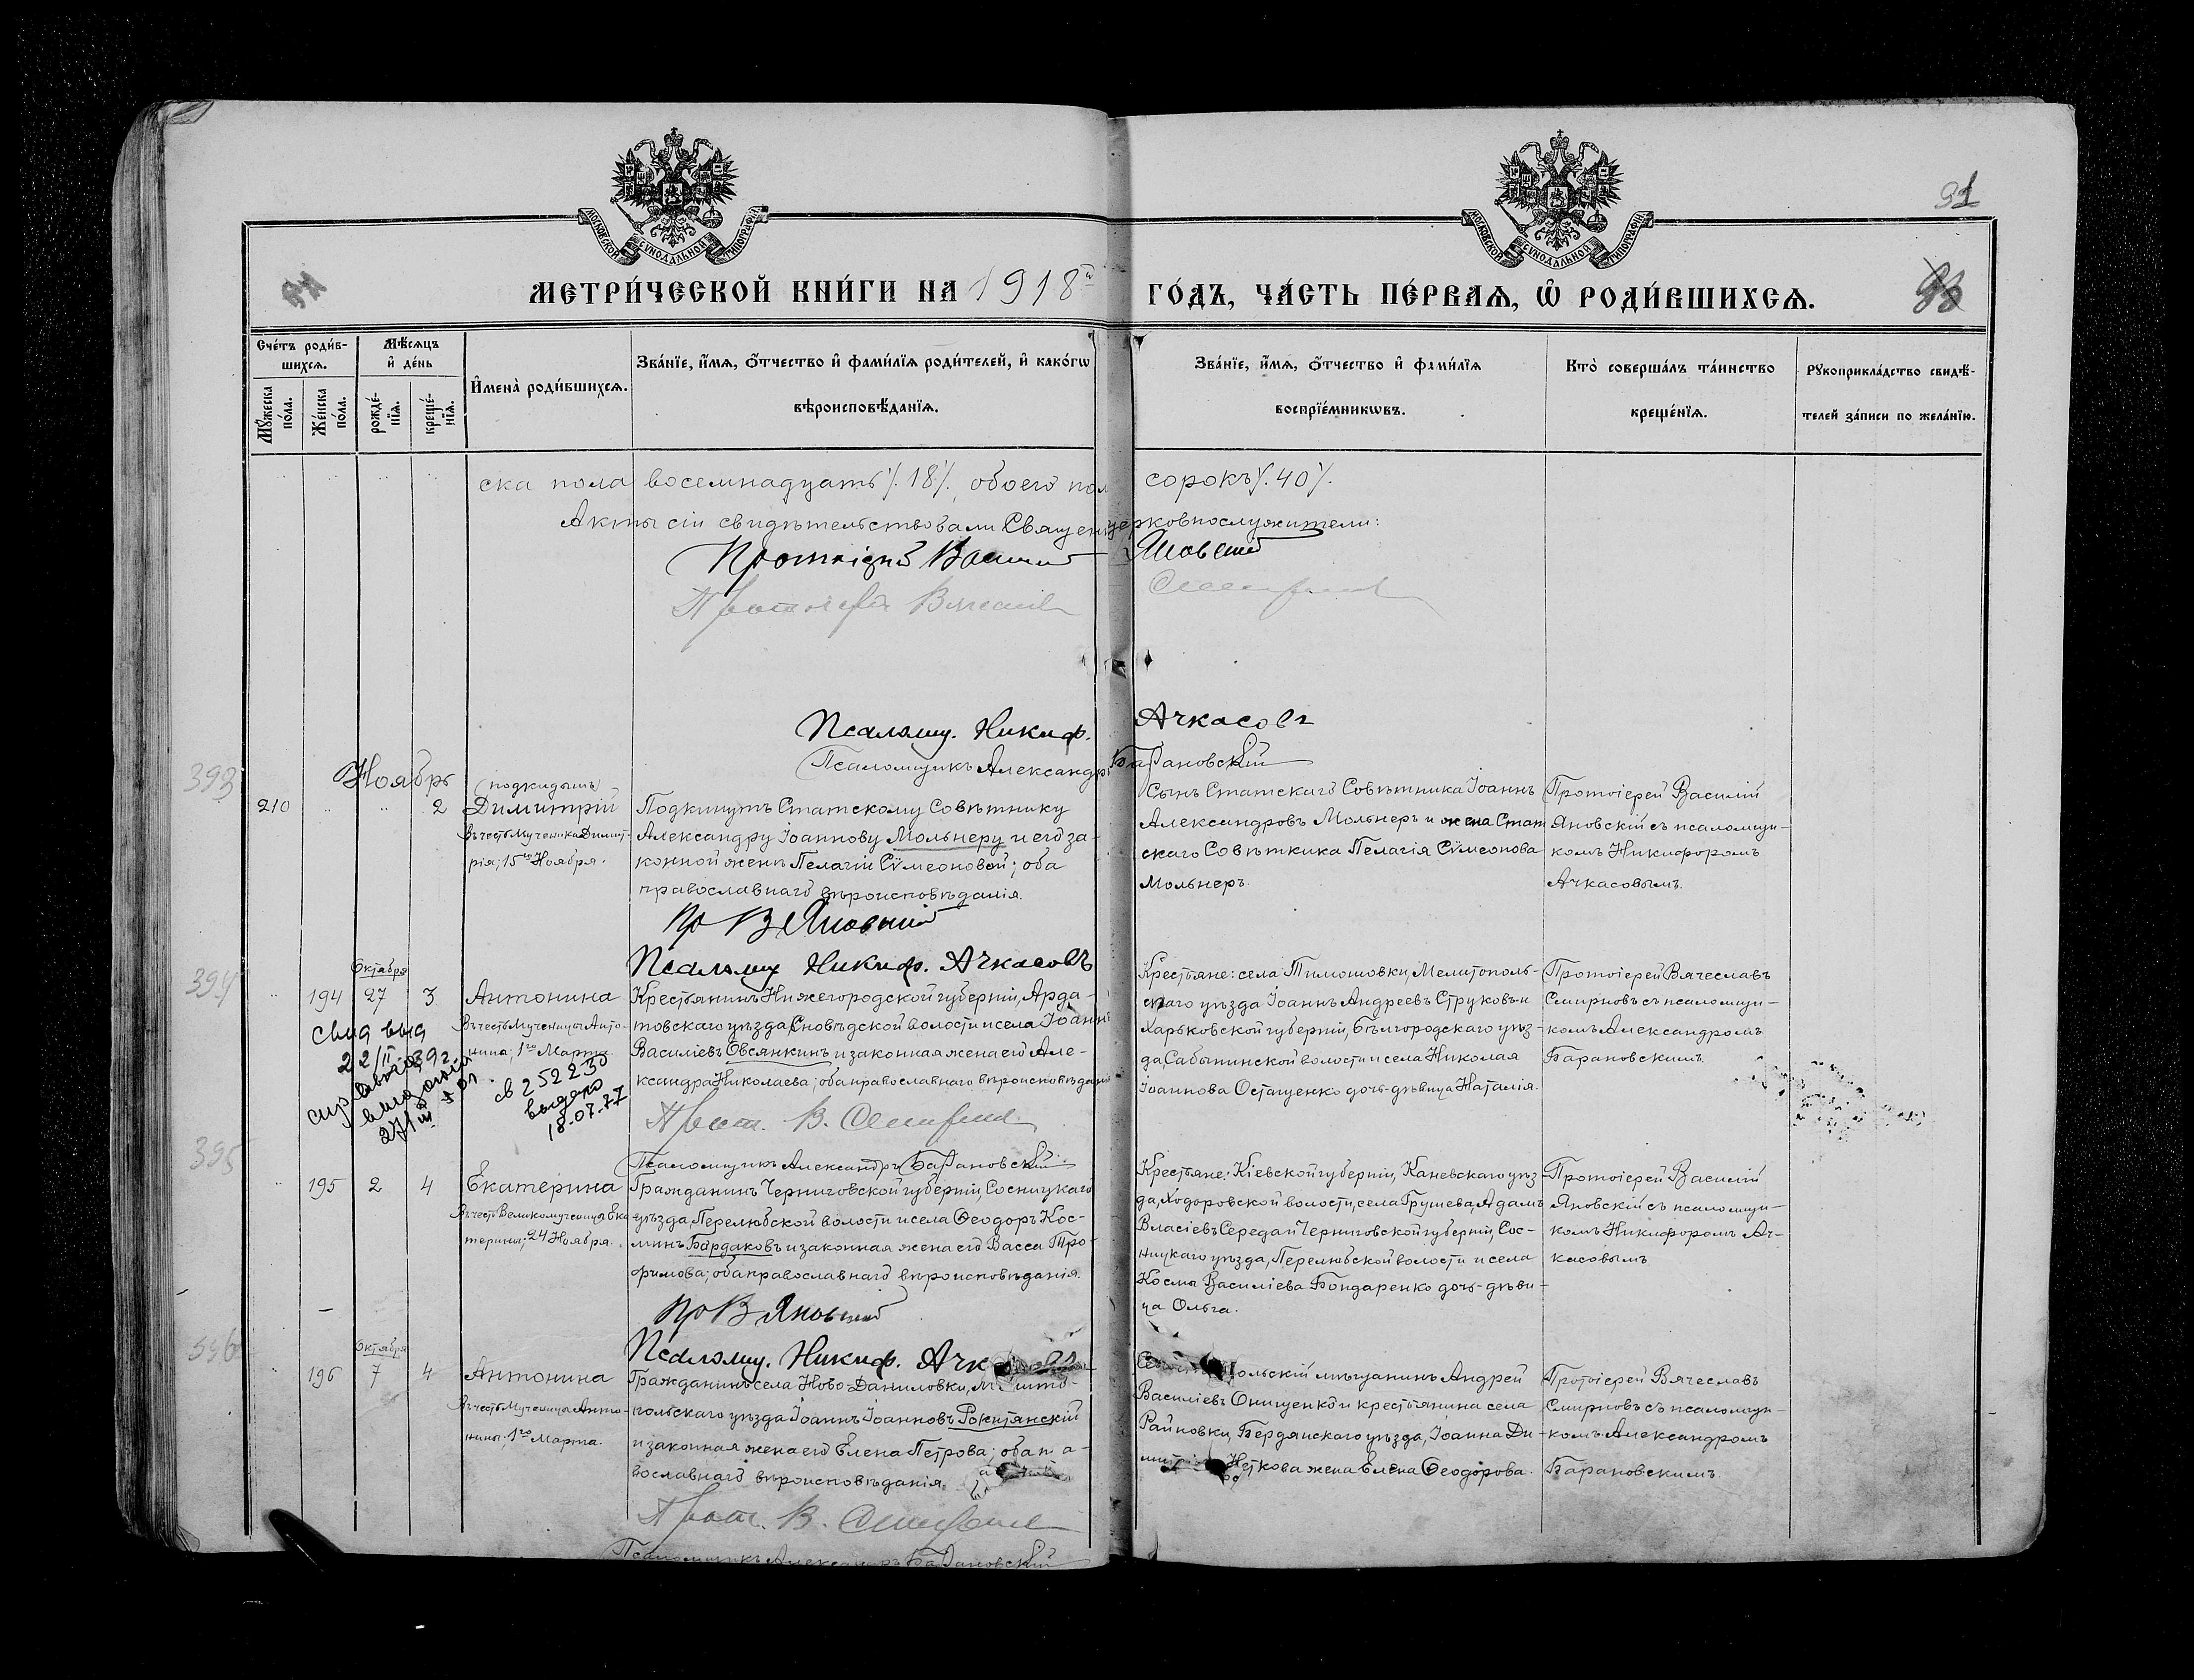 МОСКОВСКОЙ СѴНОДАЛЬНОЙ ТИПОГРАФІИ
МОСКОВСКОЙ СѴНОДАЛЬНОЙ ТИПОГРАФІИ
91
МЕТРИ́ЧЕСКОЙ КНИ́ГИ НА 1918й ГО́ДЪ, ЧА́СТЬ ПЕ́РВАѦ, Ѡ РОДИ́ВШИХСѦ.
Сче́тъ роди́в-
шихсѧ.
Мꙋ́жеска по́ла.
Же́нска по́ла.
Мѣ́сѧцъ
и де́нь
рожде́-
нїѧ.
креще́-
нїѧ.
И҆мена̀ роди́вшихсѧ.
Зва́нїе, и҆́мѧ, ѻ҆́тчество и҆ фами́лїѧ роди́телей, и҆ како́гѡ
вѣроисповѣ́данїѧ.
Зва́нїе, и҆́мѧ, ѻ҆́тчество и҆ фами́лїѧ
воспрїе́мникѡвъ.
Кто̀ соверша́лъ та́инство
креще́нїѧ.
Рꙋкоприкла́дство свидѣ́-
телей за́писи по жела́нїю.
ска пола восемнадцать ⁒ 18 ⁒, обоего пол сорокъ ⁒ 40 ⁒.
Акты сіи свидѣтельствовали Священ церковнослужители:
Протоіерей Василій Яновскій
Протоіерей Вячеслав Смирнов
Псаломщ. Никиф. Ачкасовъ
Псаломщикъ Александръ Барановскій
393
Ноябрь
210
2
(подкидышъ)
Димитрій
Въ честь Мученика Димит-
рія; 15го Ноября.
Подкинутъ Статскому Совѣтнику
Александру Іоаннову Мольнеру и его за-
конной женѣ Пелагіи Сѵмеоновой; оба
православнаго вѣроисповѣданія.
Пр В Яновскій
Псаломщ Никиф. Ачкасовъ
Сынъ Статскаго Совѣтника Іоаннъ
Александровъ Мольнеръ и жена Стат
скаго Совѣтника Пелагія Сѵмеонова
Мольнеръ.
Протоіерей Василій
Яновскій съ псаломщи-
комъ Никифоромъ
Ачкасовымъ.
394
Октября
194
27
3
Антонина
Въ честь Мученицы Анто-
нина; 1го Марта.
свид выд
22/II-39г.
св 252230
выдано
18.07.77
Крестьянинъ Нижегородской губерніи, Арда-
товскаго уѣзда, Сновѣдской волости и села Іоаннъ
Василіевъ Овсянкинъ и законная жена его Але-
ксандра Николаева; оба православнаго вѣроисповѣданія
Прот. В. Смирнов
Псаломщикъ Александръ Барановскій
Крестьяне: села Тимошовки, Мелитополь-
скаго уѣзда Іоаннъ Андреевъ Струковъ и
Харьковской губерніи, Бѣлгородскаго уѣз-
да, Сабынинской волости и села Николая
Іоаннова Остащенко дочь-дѣвица Наталія.
Протоіерей Вячеславъ
Смирновъ съ псаломщи-
комъ Александромъ
Барановскимъ.
395
195
2
4
Екатерина
Въ честь Великомученицы Ека
терины; 24 Ноября.
Гражданинъ Черниговской губерніи, Сосницкаго
уѣзда, Перелюбской волости и села Ѳеодоръ Кос-
минъ Бардаковъ и законная жена его Васса Тро-
фимова; оба православнаго вѣроисповѣданія.
Пр В Яновскій
Псаломщ. Никиф. Ачк
Крестьяне: Кіевской губерніи, Каневскаго уѣз-
да, Ходоровской волости, села Грушева, Адамъ
Власіевъ Середа и Черниговской губерніи, Сос-
ницкаго уѣзда, Перелюбской волости и села
Космы Василіева Бондаренко дочь-дѣви-
ца Ольга.
Протоіерей Василій
Яновскій съ псаломщи-
комъ Никифоромъ Ач-
касовымъ
396
Октября
196
7
4
Антонина
Въ честь Мученицы Анто-
нины; 1го Марта.
Гражданинъ села Ново-Даниловки, Мелито-
польскаго уѣзда Іоаннъ Іоанновъ Рокитянскій
и законная жена его Елена Петрова; оба
вославнаго вѣроисповѣданія.
Прот. В. Смирнов
Псаломщикъ Александръ Барановскій
ольскій мѣщанинъ Андрей
Василіевъ Онищенко и крестьянина села
Райновки, Бердянскаго уѣзда, Іоанна Ди-
Неткова жена Елена Ѳеодорова.
Протоіерей Вячеславъ
Смирновъ съ псаломщи-
комъ Александромъ
Барановскимъ.